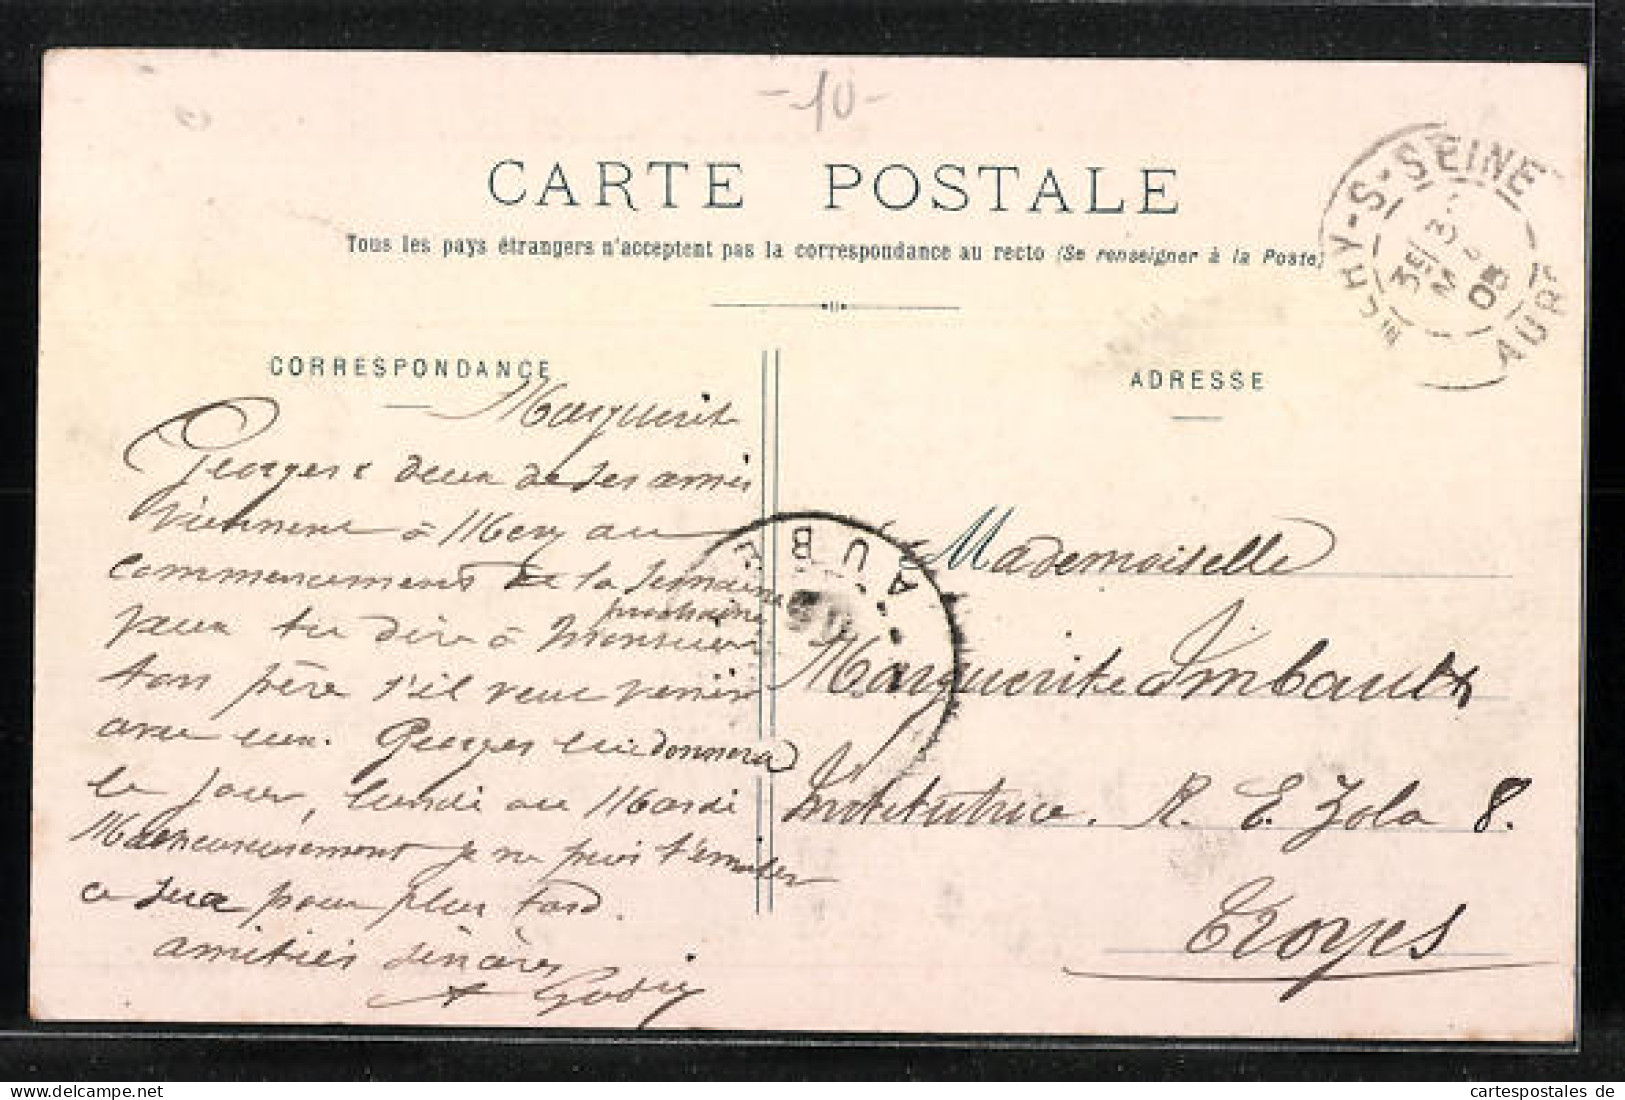 -10-
CARTE POSTALE
Tous les pays étrangers n'acceptent pas la correspondance au recto (Se renseigner à la Poste)
MÉRY-S-SEINE
3E
05
AUBE
CORRESPONDANCE
ADRESSE
Marguerite
Georges & deux de ses amis
viennent à Méry au
commencement de la semaine
prochaine
veux tu dire à Monsieur
ton père s'il veut venir
avec eux. Georges lui donnera
le jour, lundi ou Mardi
Malheureusement je ne puis t'inviter
ce sera pour plus tard.
amitiés sincères
A Godin
AUBE
Mademoiselle
Marguerite Imbault
Institutrice. R. E. Zola 8.
Troyes
cartespostales de